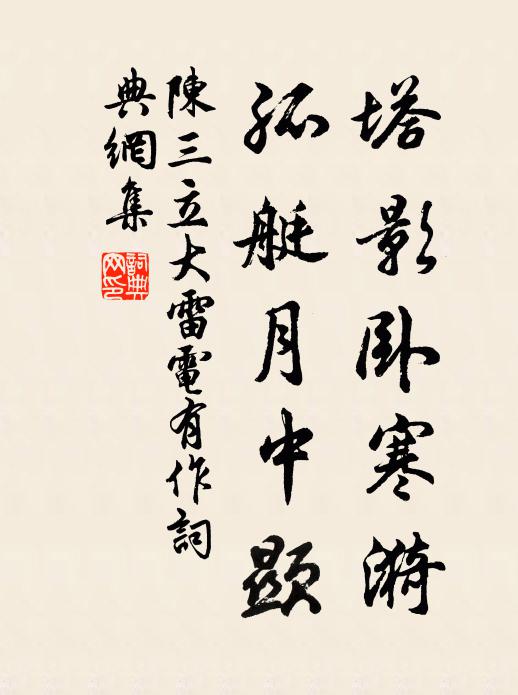 塔影卧寒漪
孤艇月中顯
陳三立大雷電有作詞
典網集
詞典網印